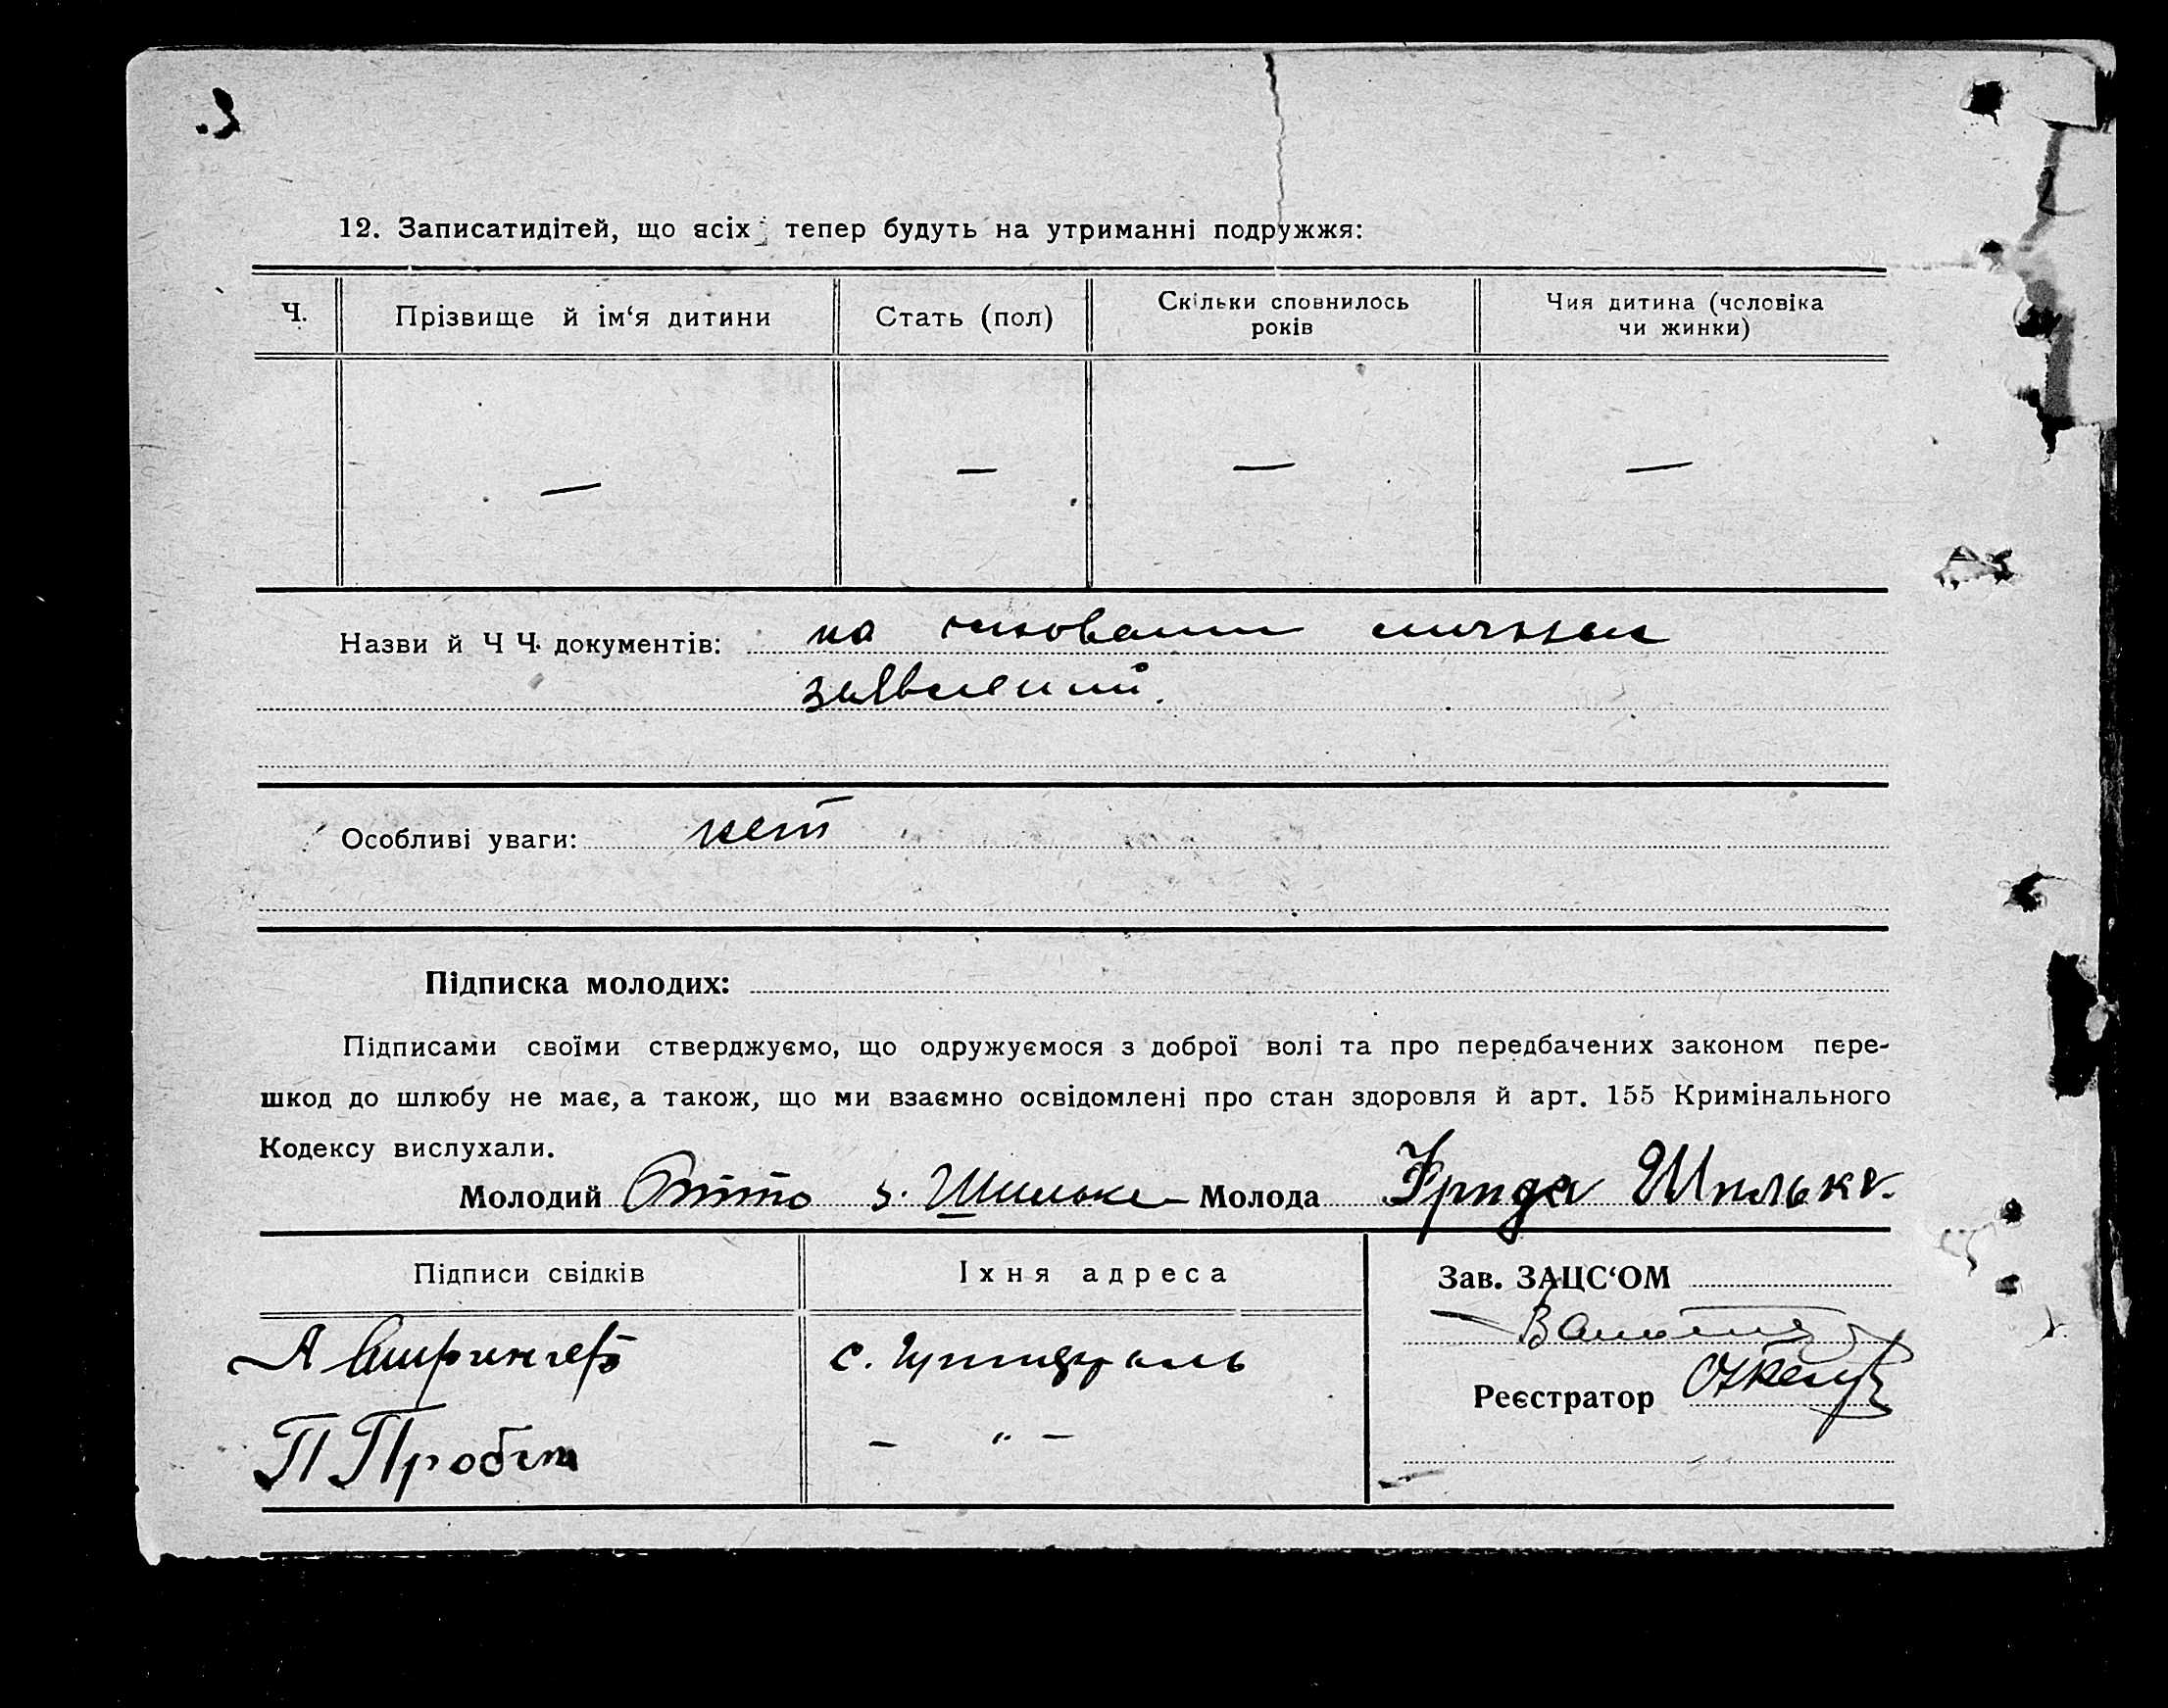 12. Записатидітей, що всіх тепер будуть на утриманні подружжя:
Ч. Прізвище й ім‘я дитини Стать (пол) Скільки сповнилось років Чия дитина (чоловіка чи жинки)
— — — —
Назви й Ч Ч. документів: на основании личных
заявлений.
Особливі уваги: нет
Підписка молодих:
Підписами своїми стверджуємо, що одружуємося з доброї волі та про передбачених законом пере-
шкод до шлюбу не має, а також, що ми взаємно освідомлені про стан здоровля й арт. 155 Кримінального
Кодексу вислухали.
Молодий Отто Шильке Молода Фрида Шильке.
Підписи свідків Їхня адреса Зав. ЗАЦС‘ОМ
А с.
Реєстратор
П Пробст — " —